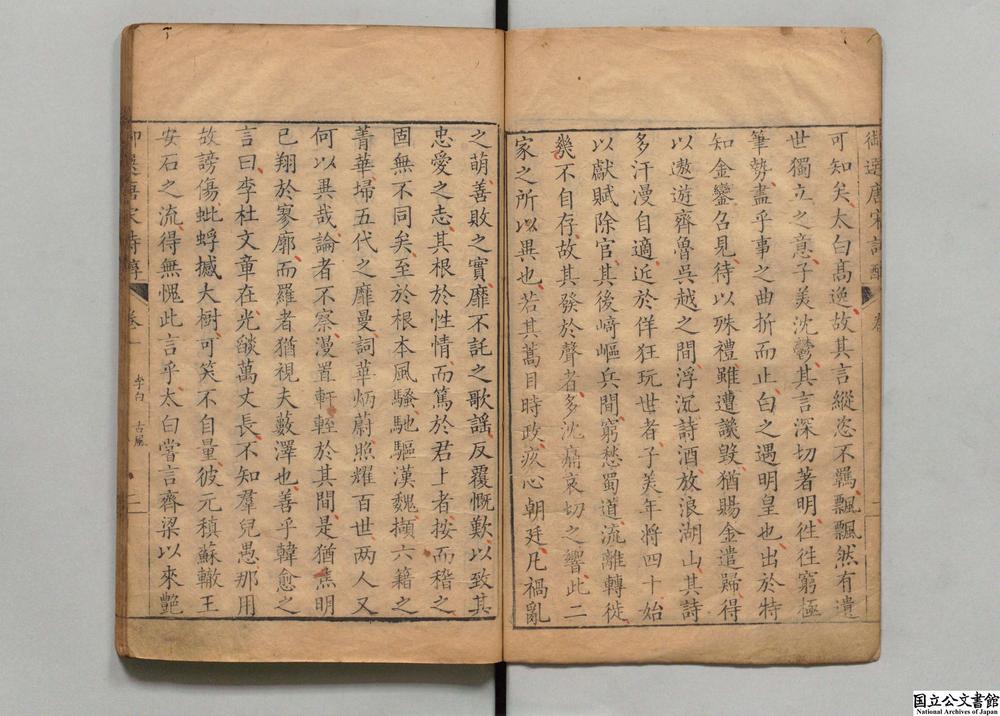 御選唐宋詩醇 卷一
可知矣太白髙逸故其言縱恣不羈飄飄然有遺
世獨立之意子美沈鬱其言深切著明徃徃窮極
筆勢盡乎事之曲折而止白之遇明皇也出於特
知金鑾召見待以殊禮雖遭讒毀猶賜金遣歸得
以遨遊齊魯吳越之間浮沉詩酒放浪湖山其詩
多汗漫自適近於佯狂玩世者子美年將四十始
以獻賦除官其後﨑嶇兵間窮愁蜀道流離轉徙
㡬不自存故其發於聲者多沈痛哀切之響此二
家之所以異也若其蒿目時政疚心朝廷凡禍亂
之萌善敗之實靡不託之歌謡反覆慨歎以致其
忠愛之志其根於性情而篤於君上者按而稽之
固無不同矣至於根本風騷馳驅漢魏擷六籍之
菁華埽五代之靡曼詞華炳蔚照耀百世两人又
何以異哉論者不察漫置軒輊於其間是猶焦明
已翔於寥廓而羅者猶視夫藪澤也善乎韓愈之
言曰李杜文章在光燄萬丈長不知羣兒愚那用
故謗傷蚍蜉撼大樹可笑不自量彼元稹蘇轍王
安石之流得無愧此言乎太白嘗言齊梁以來艷
御選唐宋詩醇 卷一 李白 古風 二
国立公文書館
National Archives of Japan